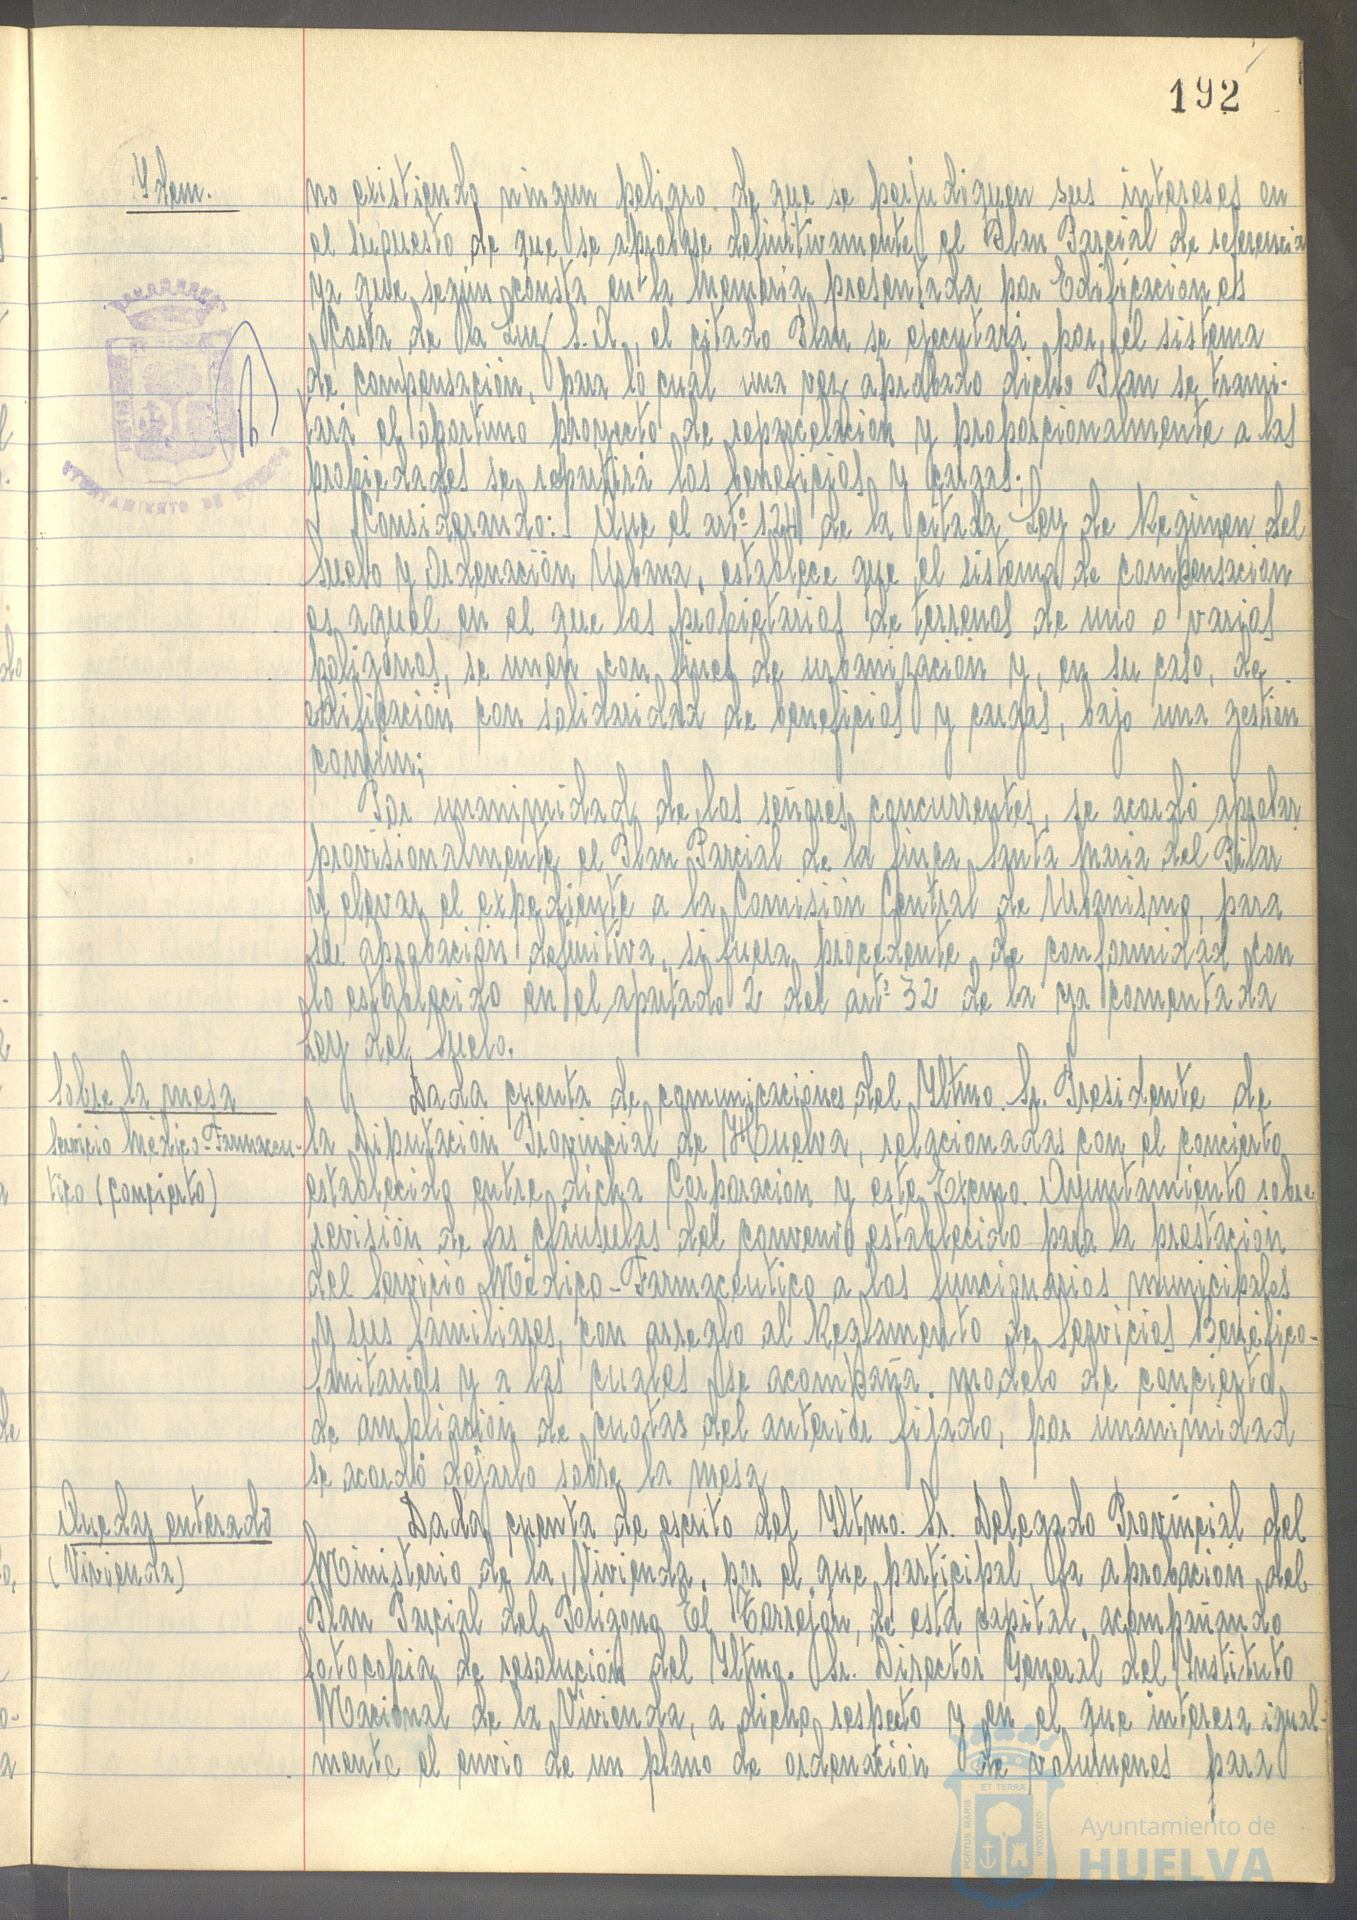 192
Idem.
no existiendo ningun peligro de que se perjudiquen sus intereses en
el supuesto de que se aprobase definitivamente el Plan Parcial de referencia
ya que según consta en la Memoria presentada por Edificaciones
Costa de la Luz S.A., el citado Plan se ejecutará por el sistema
de compensación, para lo cual una vez aprobado dicho Plan se trami-
tará el oportuno proyecto de reparcelación y proporcionalmente a las
propiedades se repartirá los beneficios y cargas;
Considerando: Que el artº 124 de la citada Ley de Regimen del
Suelo y Ordenación Urbana, establece que el sistema de compensación
es aquel en el que los propietarios de terrenos de uno o varios
poligonos, se unen con fines de urbanización y, en su caso, de
edificación con solidaridad de beneficios y cargas, bajo una gestión
común;
Por unanimidad de los señores concurrentes, se acordó aprobar
provisionalmente el Plan Parcial de la finca Santa Maria del Pilar
y elevar el expediente a la Comisión Central de Urbanismo, para
su aprobación definitiva, si fuera procedente, de conformidad con
lo establecido en el apartado 2 del artº 32 de la ya comentada
Ley del Suelo.
Sobre la mesa
Servicio Médico-Farmaceu-
tico (concierto)
Dada cuenta de comunicaciones del Yltmo. Sr. Presidente de
la Diputación Provincial de Huelva, relacionadas con el concierto
establecido entre dicha Corporación y este Excmo. Ayuntamiento sobre
revisión de las cláusulas del convenio establecido para la prestación
del Servicio Médico-Farmaceutico a los funcionarios municipales
y sus familiares, con arreglo al Reglamento de Servicios Benéfico-
Sanitarios y a las cuales se acompaña modelo de concierto
de ampliación de cuotas del anterior fijado, por unanimidad
se acordó dejarlo sobre la mesa
Quedar enterado
(Vivienda)
Dada cuenta de escrito del Yltmo. Sr. Delegado Provincial del
Ministerio de la Vivienda, por el que participa, la aprobación del
Plan Parcial del Poligono El Torrejón, de esta capital, acompañando
fotocopia de resolución del Yltmo. Sr. Director General del Instituto
Nacional de la Vivienda, a dicho respecto y en el que interesa igual-
mente el envio de un plano de ordenación de volumenes para
AYUNTAMIENTO DE HUELVA
PORTUS MARIS ET TERRAE CUSTODIA
Ayuntamiento de
HUELVA